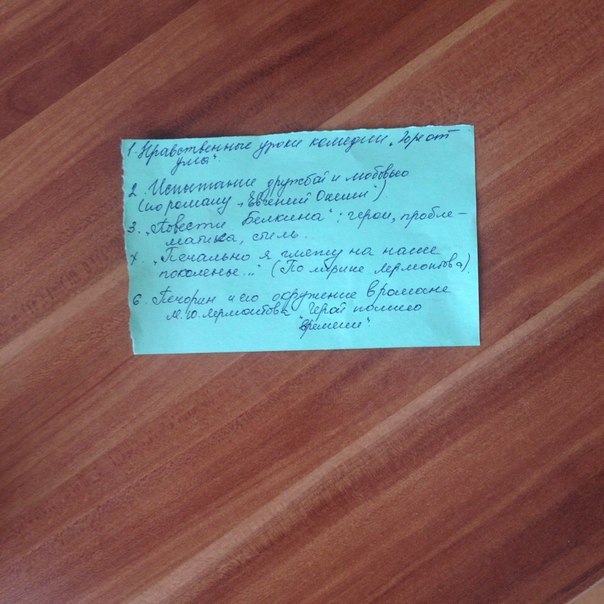 1. Нравственные уроки комедии „Горе от
ума".
2. Испытание дружбой и любовью
(по роману „Евгений Онегин")
3. „Повести Белкина": герои, пробле-
матика, стиль.
4. „Печально я гляжу на наше
поколенье..." (По лирике Лермонтова)
6. Печорин и его окружение в романе
М.Ю. Лермонтова "Герой нашего
времени"